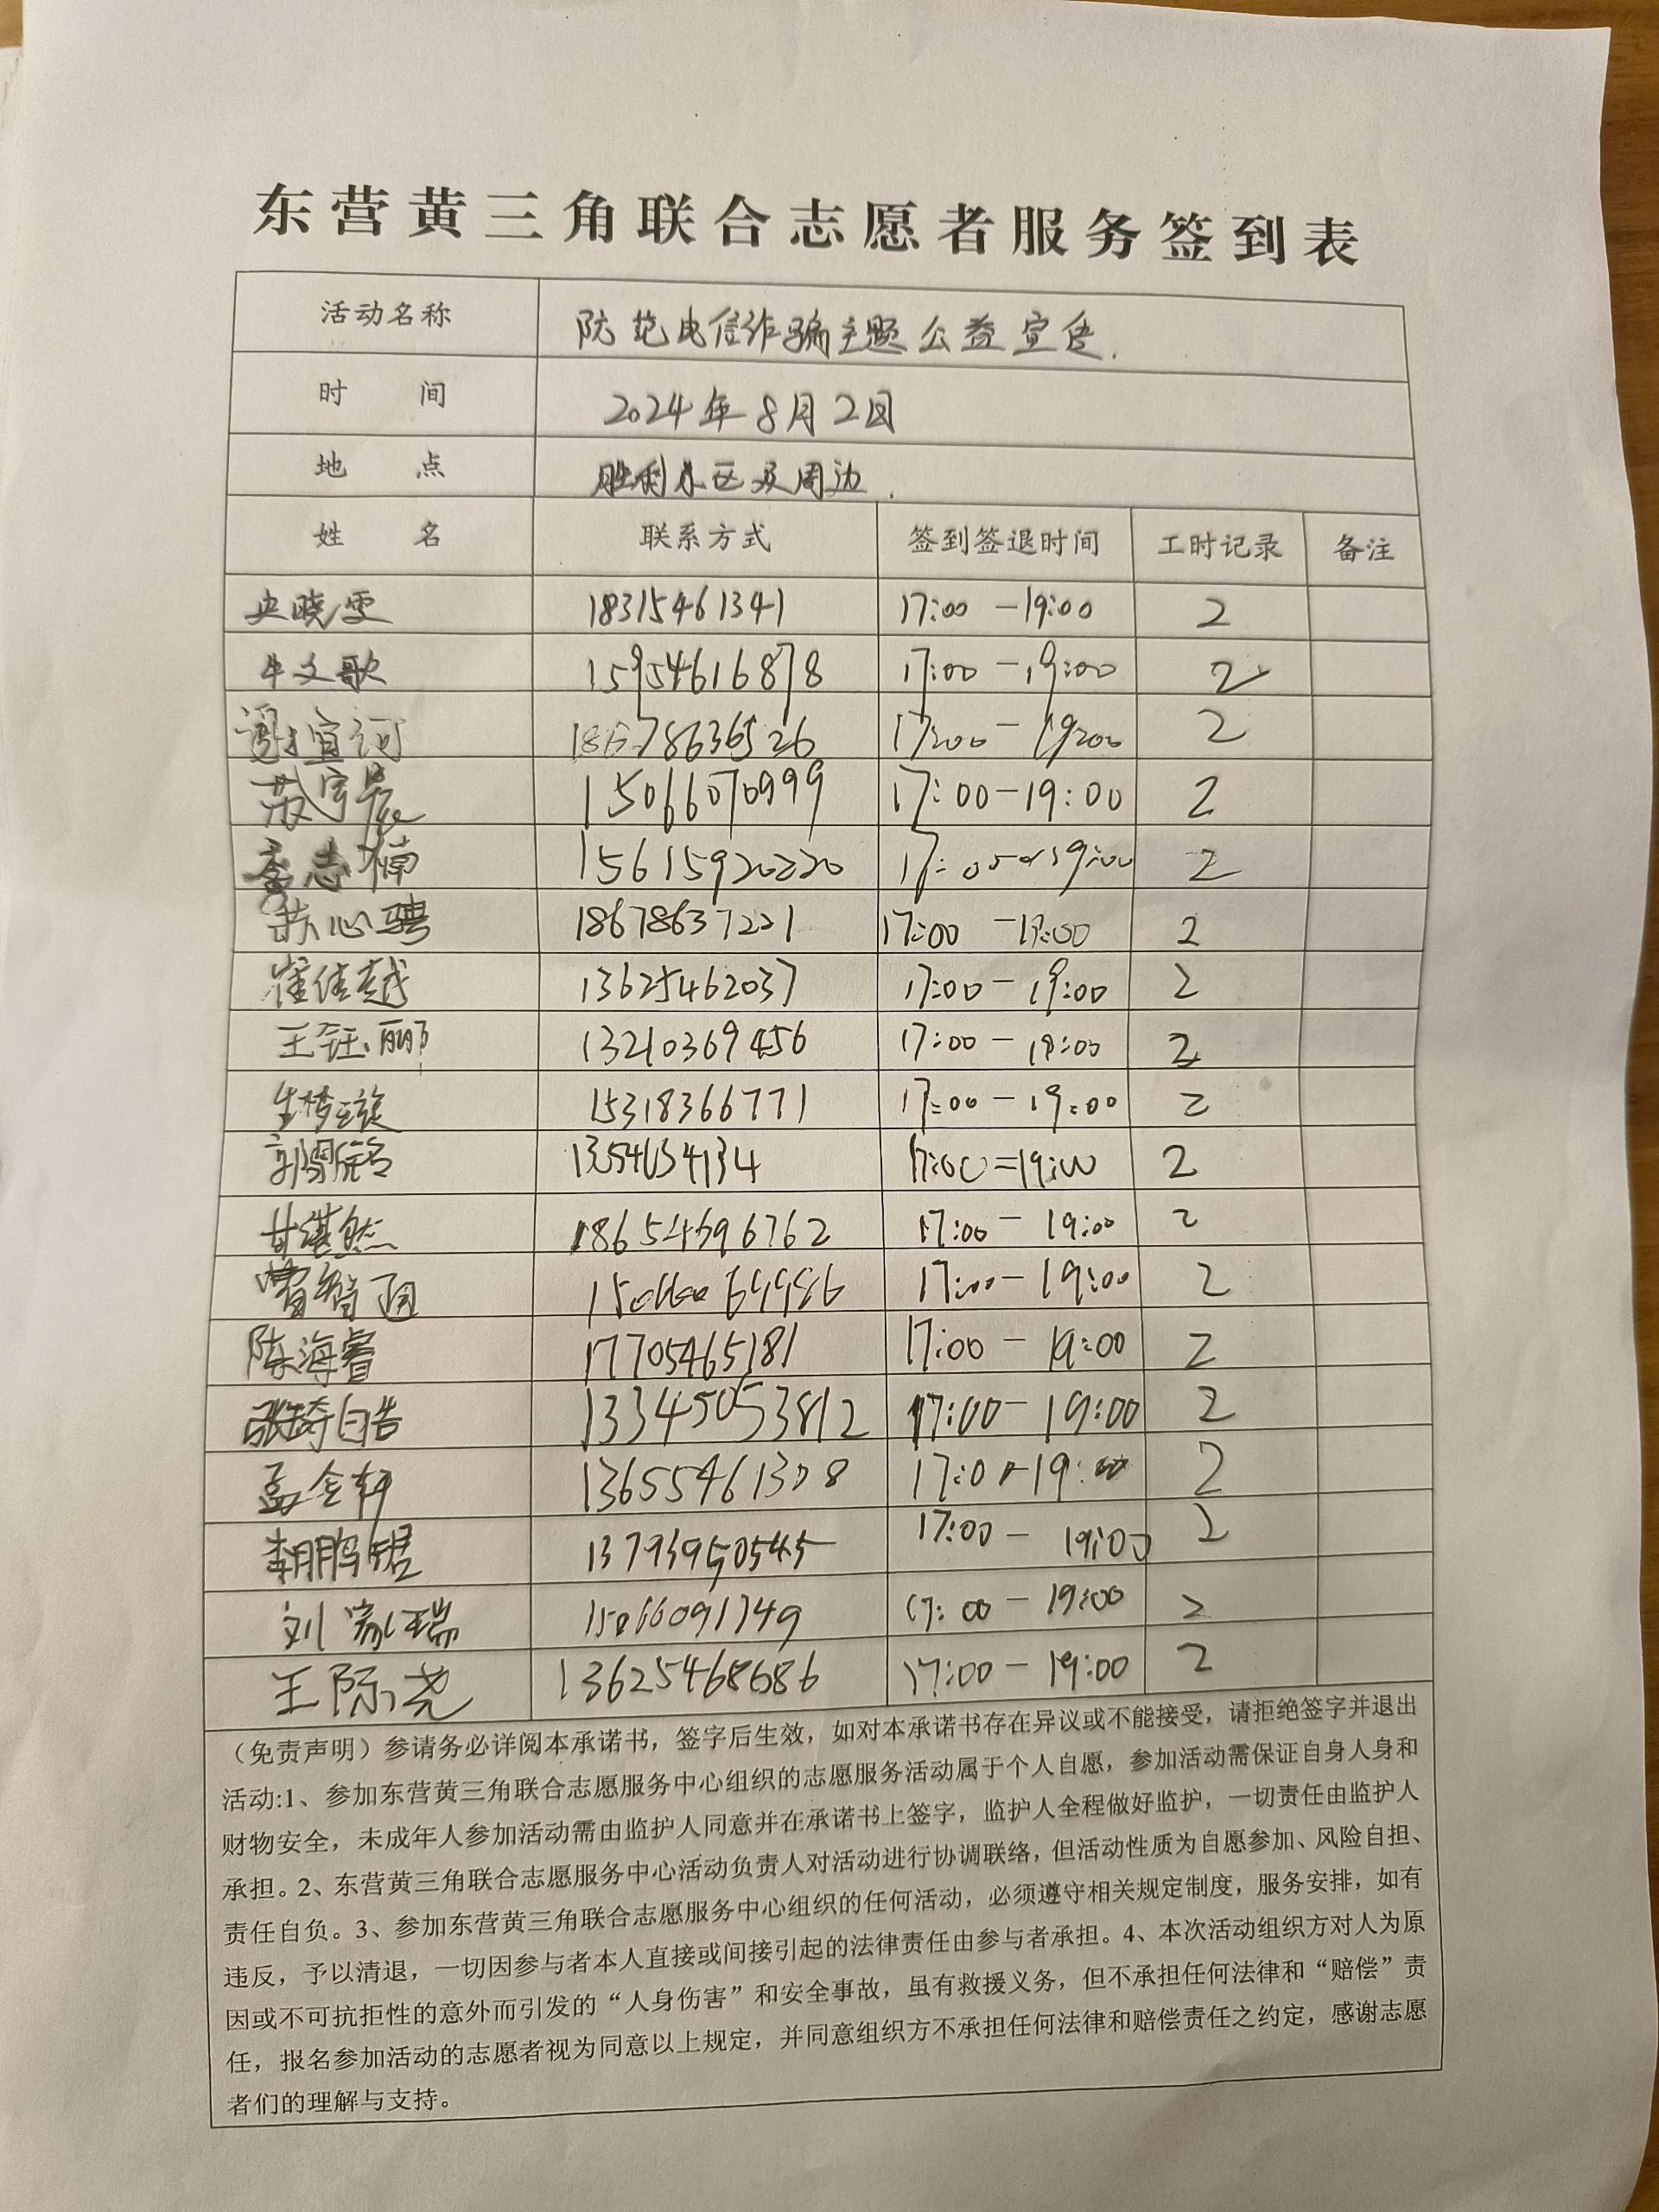 东营黄三角联合志愿者服务签到表
活动名称 防范电信诈骗主题公益宣传.
时 间 2024年8月2日
地 点 胜利水区及周边.
姓 名 联系方式 签到签退时间 工时记录 备注
史晓雯 18315461341 17:00-19:00 2
牛文歌 15954616878 17:00-19:00 2
谢宜诃 18678636526 17:00-19:00 2
苏宇晨 15066070999 17:00-19:00 2
李志楠 15615920220 17:00-19:00 2
苏心骋 18678637221 17:00-19:00 2
崔佳越 13625462037 17:00-19:00 2
王钰郦 13210369456 17:00-19:00 2
生梦璇 15318366771 17:00-19:00 2
17:00=19:00 2
甘湛然 18654696762 17:00-19:00 2
17:00-19:00 2
陈海睿 17705465181 17:00-19:00 2
张琦皓 13345053812 17:00-19:00 2
孟金轩 13655461308 17:00-19:00 2
李鹏珺 13793950545 17:00-19:00 2
刘家瑞 15066091749 17:00-19:00 2
王际尧 13625468686 17:00-19:00 2
（免责声明）参请务必详阅本承诺书，签字后生效，如对本承诺书存在异议或不能接受，请拒绝签字并退出
活动:1、参加东营黄三角联合志愿服务中心组织的志愿服务活动属于个人自愿，参加活动需保证自身人身和
财物安全，未成年人参加活动需由监护人同意并在承诺书上签字，监护人全程做好监护，一切责任由监护人
承担。2、东营黄三角联合志愿服务中心活动负责人对活动进行协调联络，但活动性质为自愿参加、风险自担、
责任自负。3、参加东营黄三角联合志愿服务中心组织的任何活动，必须遵守相关规定制度，服务安排，如有
违反，予以清退，一切因参与者本人直接或间接引起的法律责任由参与者承担。4、本次活动组织方对人为原
因或不可抗拒性的意外而引发的“人身伤害”和安全事故，虽有救援义务，但不承担任何法律和“赔偿”责
任，报名参加活动的志愿者视为同意以上规定，并同意组织方不承担任何法律和赔偿责任之约定，感谢志愿
者们的理解与支持。